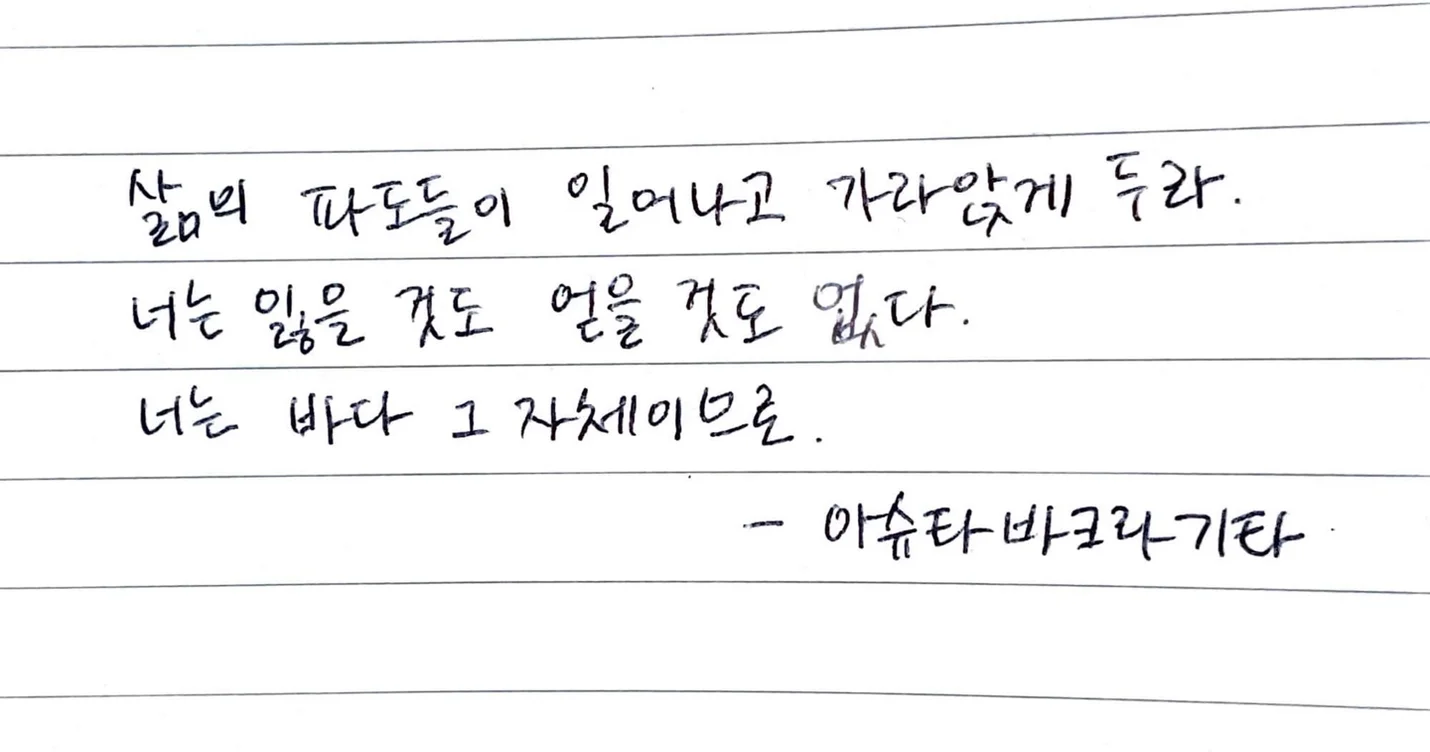 삶의 파도들이 일어나고 가라앉게 두라.
너는 잃을 것도 얻을 것도 없다.
너는 바다 그 자체이므로.
- 아슈타바크라기타